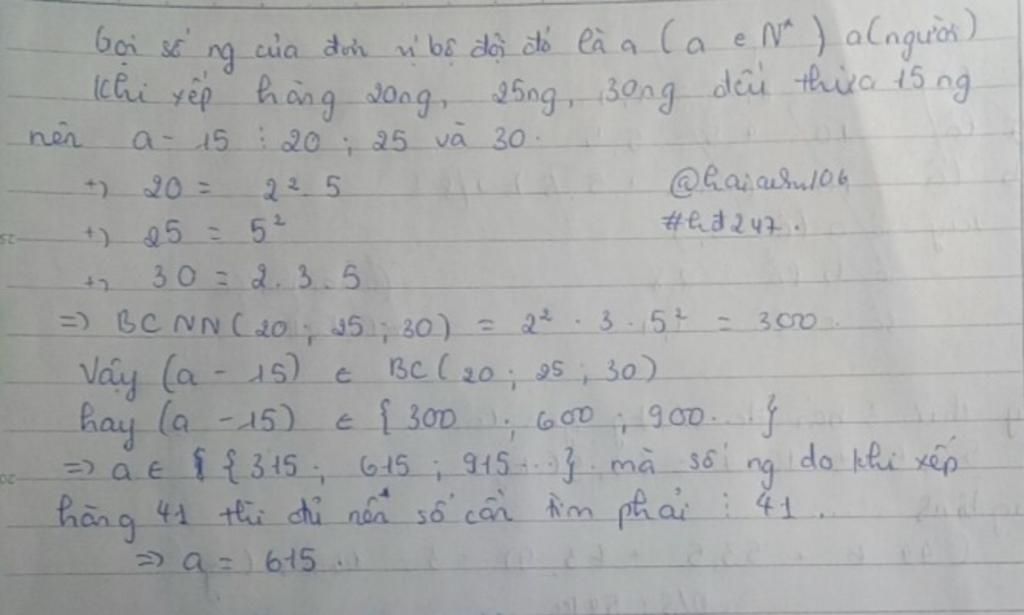 Gọi số ng của đơn vị bộ đội đó là a ( a ∈ N* ) a(người)
Khi xếp hàng 20ng, 25ng, 30ng đều thừa 15 ng
nên a - 15 ⋮ 20 ; 25 và 30.
+) 20 = 2² . 5
@haiausu106
+) 25 = 5²
#hđ247.
+) 30 = 2. 3 . 5
=> BCNN( 20 ; 25 ; 30 ) = 2² . 3 . 5² = 300.
Vậy (a - 15) ∈ BC( 20 ; 25 ; 30 )
hay (a - 15) ∈ { 300 ; 600 ; 900. . }
=> a ∈ { { 315 ; 615 ; 915 ..} mà số ng do khi xếp
hàng 41 thì đủ nên số cần tìm phải ⋮ 41.
=> a = 615.